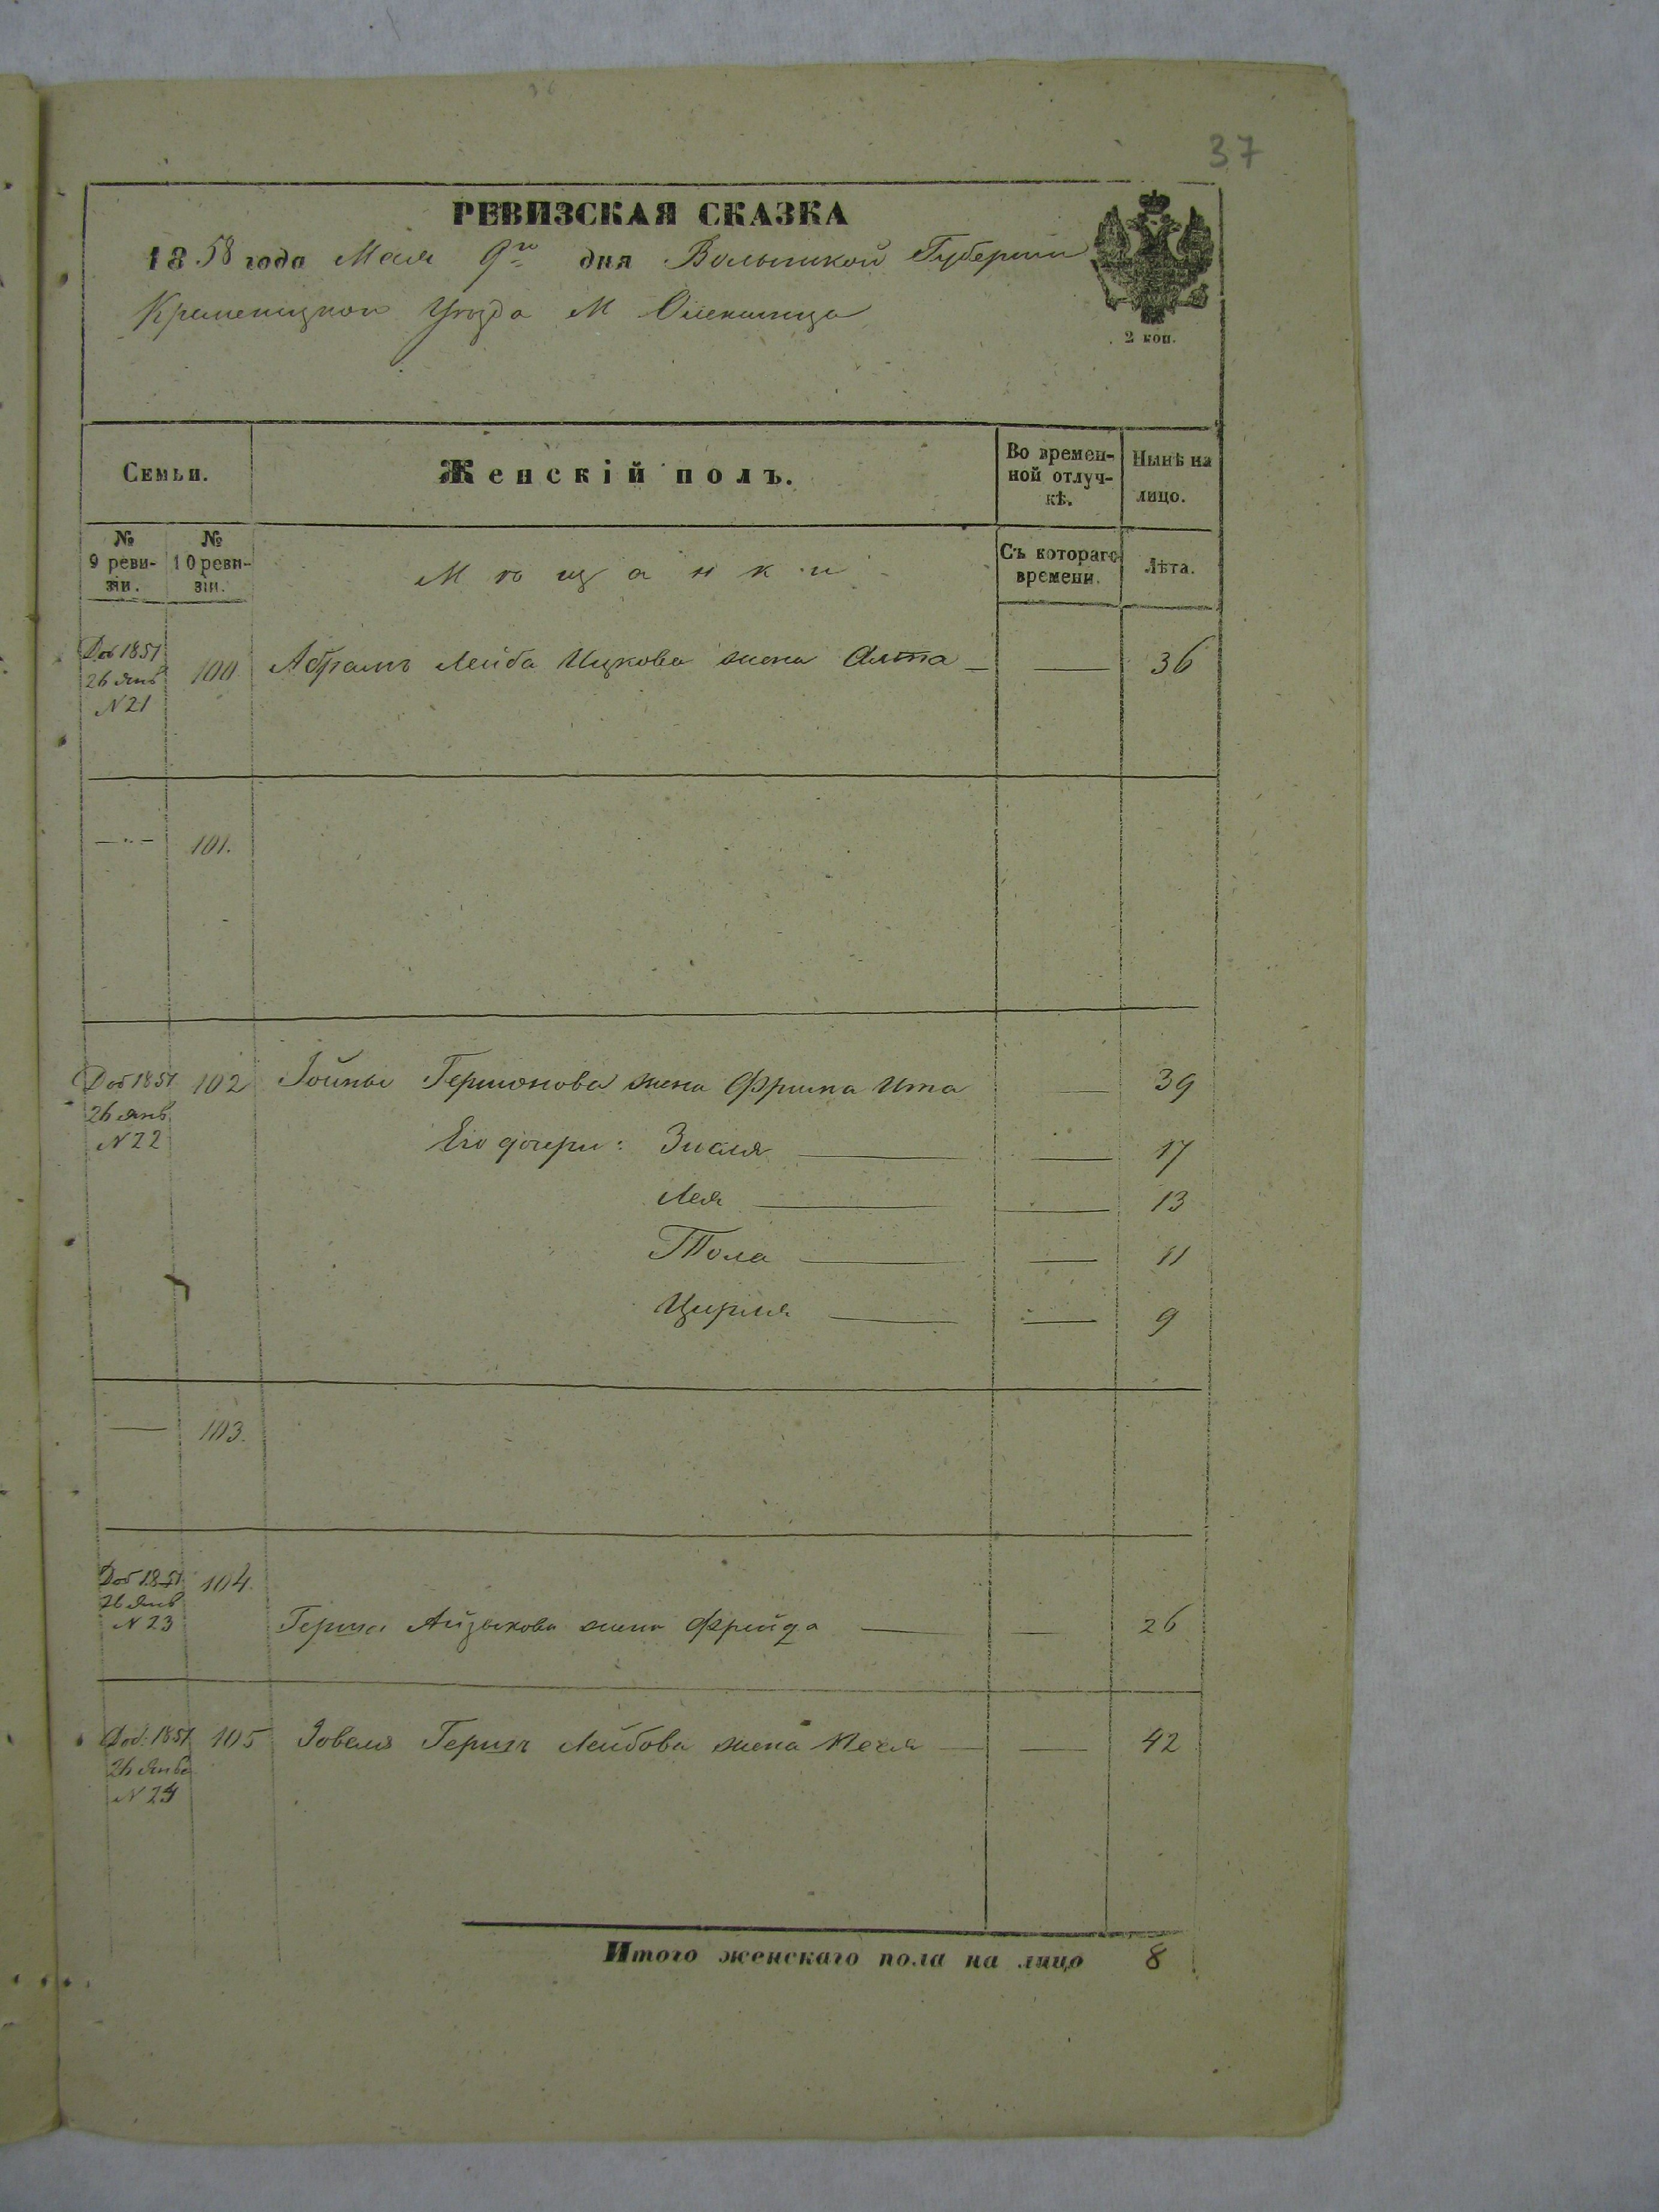 37
РЕВИЗСКАЯ СКАЗКА
1858 года Мая 9го дня Волынской Губернии
Кременецкого Уѣзда М Олексинца
2 коп.
Семьи.
Женскій полъ.
Во времен-
ной отлуч-
кѣ.
Нынѣ на
лицо.
№
9 реви-
зіи.
№
10 реви-
зіи.
Мѣщанки
Съ котораго
времени.
Лѣта.
Доб 1851
26 Янв
N 21
100 Абрамъ Лейба Ицкова жена Алта — — 36
— 101.
Доб 1851
26 Янв
N 22
102 Іойны Гершонова жена Фрима Ита — 39
Его дочери: Зисля — — 17
Лея — — 13
Тола — — 11
Цирля — — 9
— 103.
Доб 1851
26 Янв
N 23
104.
Герша Айзыкова жена Фрейда — — 26
Доб. 1851
26 Янв
N 24
105 Іовеля Гершъ Лейбова жена Неся — — 42
Итого женскаго пола на лицо 8